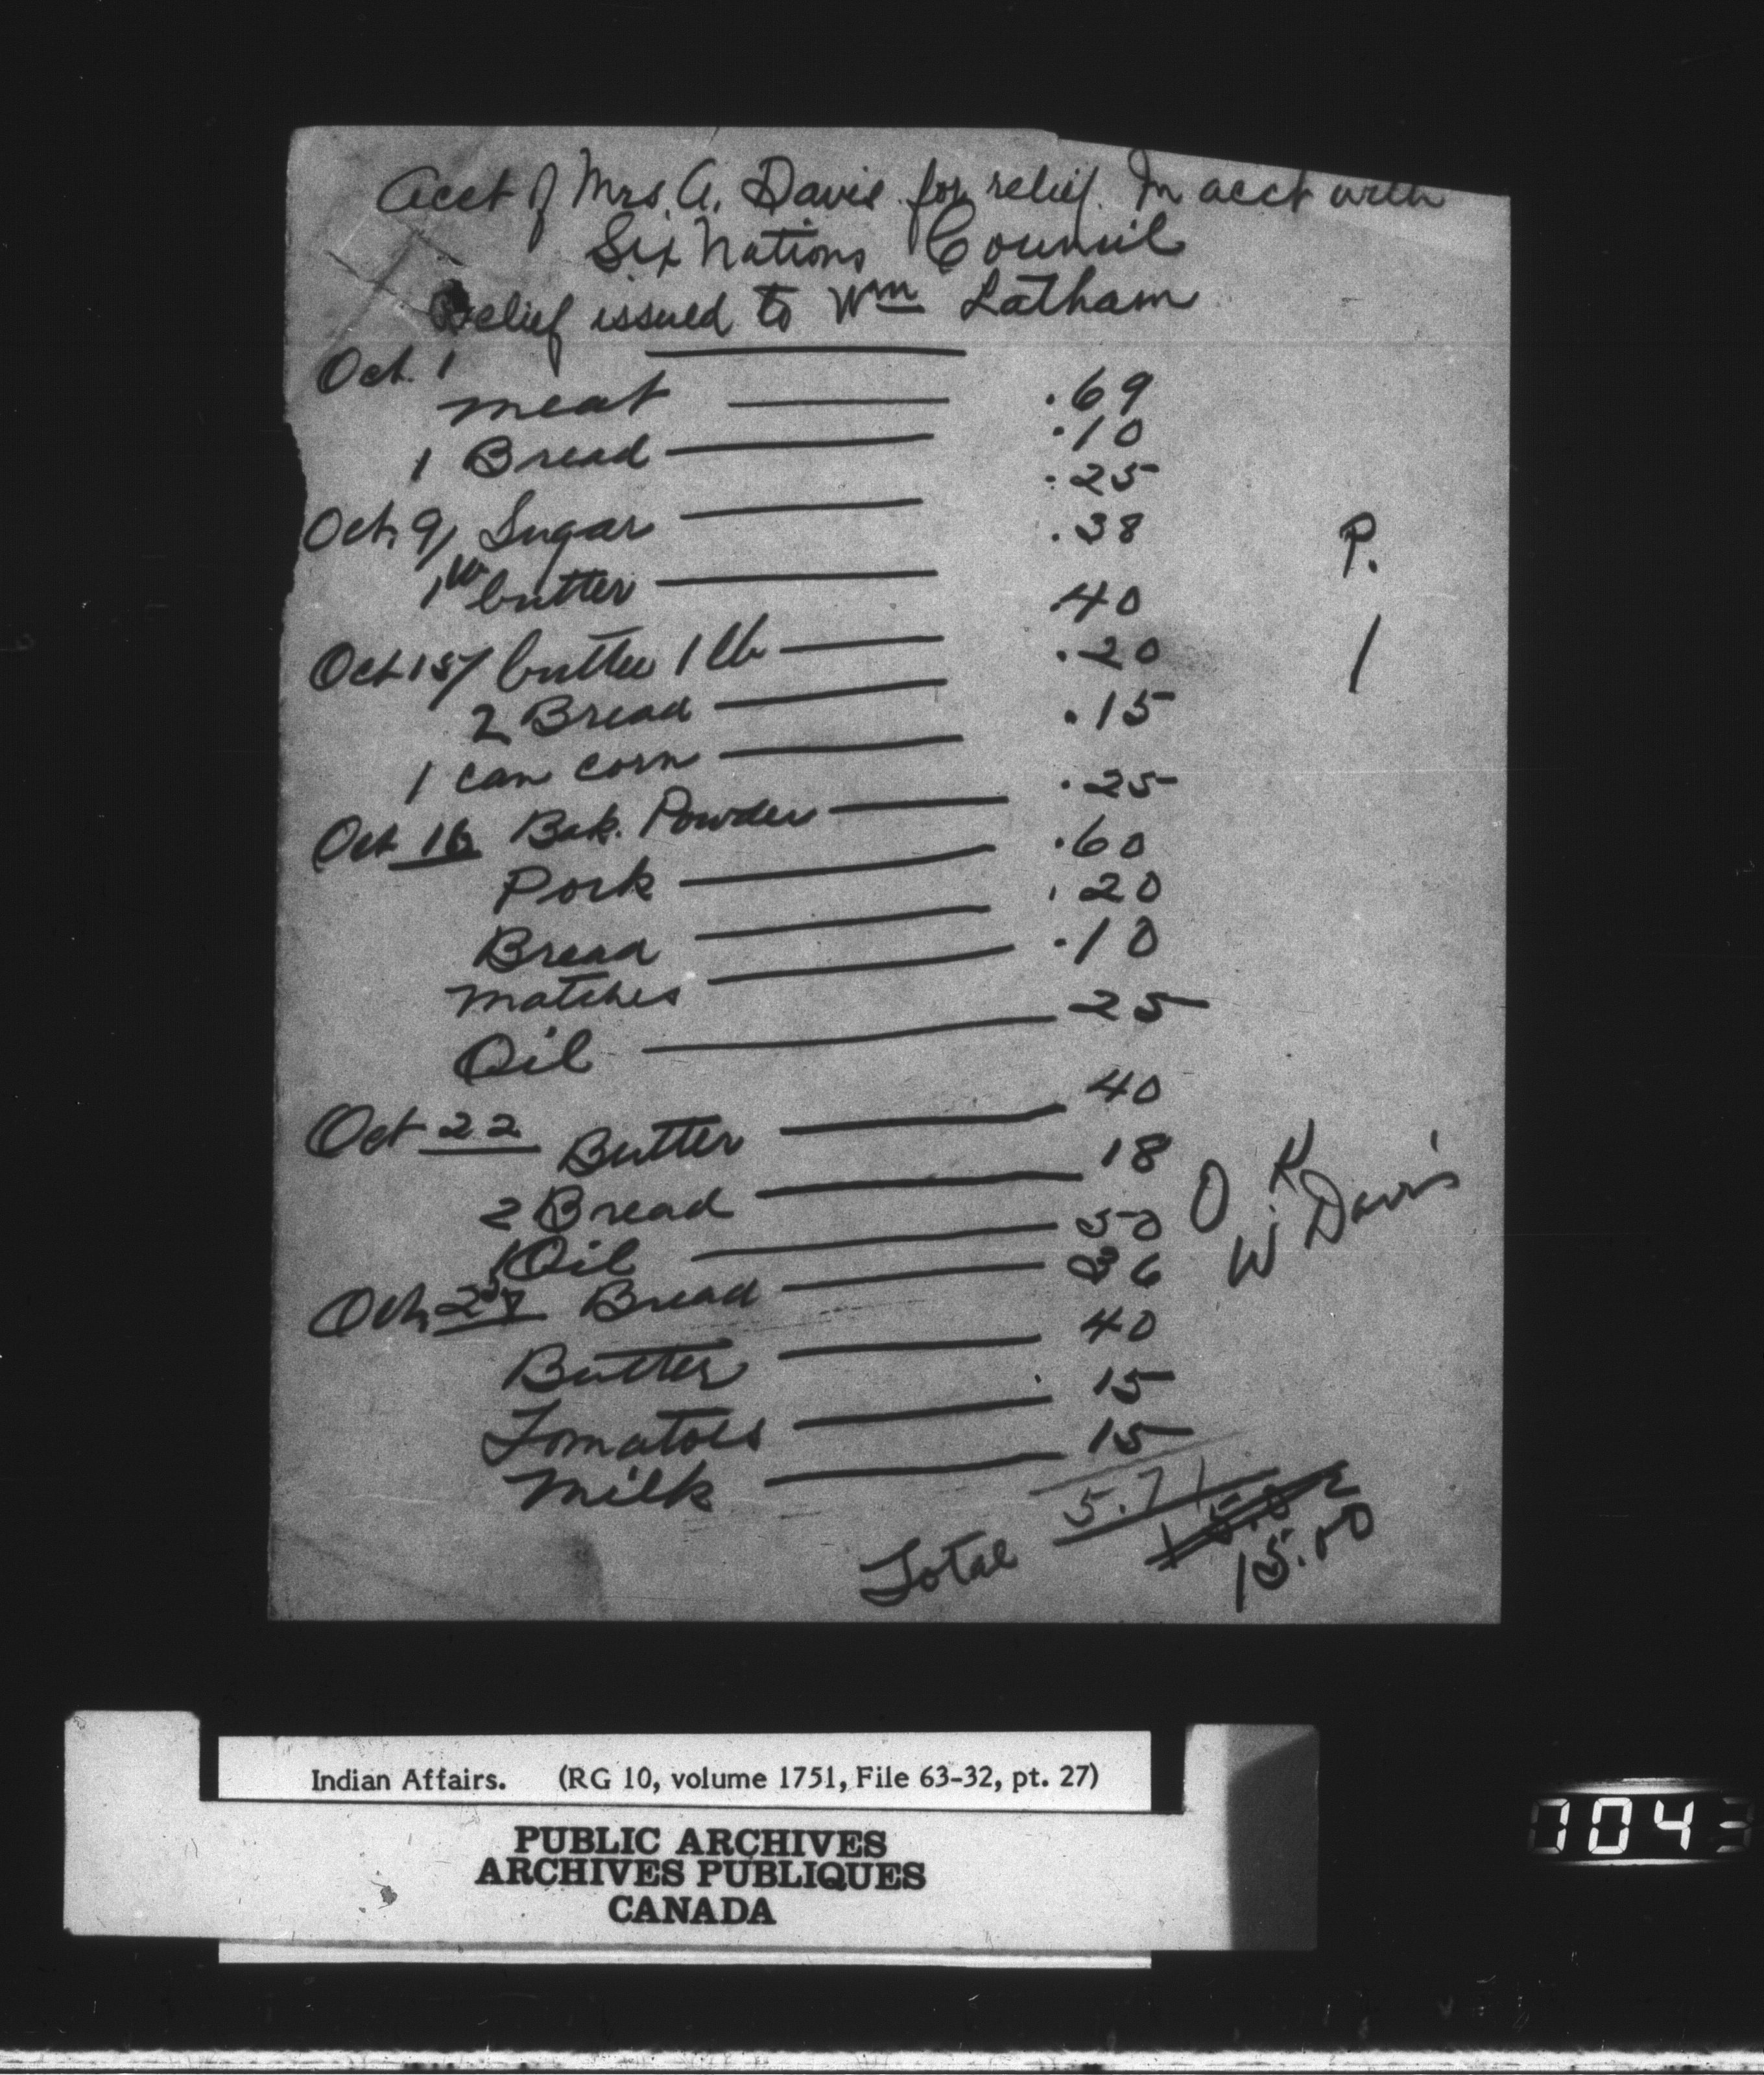 Acct of Mrs. A. Davis for relief. In acct with
Six Nations Council
Relief issued to Wm Latham
Oct. 1
meat .69
1 Bread .10
Oct. 9/ Sugar .25
1 lb butter .38
Oct 15/ butter 1 lb .40
2 Bread .20
1 can corn .15
Oct 16 Bak. Powder .25
Pork .60
Bread .20
matches .10
Oil 25
Oct 22 Butter 40
2 Bread 18
1 Oil 50
Oct. 27 Bread 36
Butter 40
Tomatoes 15
Milk 15
5.71
Total 15.00
P.
1
O.K
W Davis
Indian Affairs. (RG 10, volume 1751, File 63-32, pt. 27)
PUBLIC ARCHIVES
ARCHIVES PUBLIQUES
CANADA
704